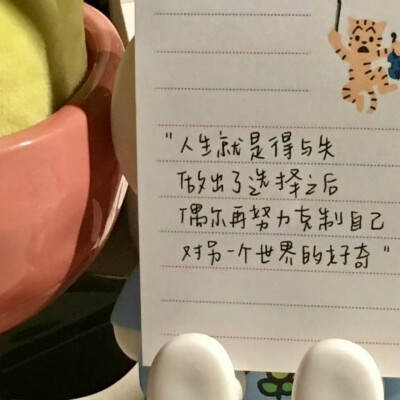 "人生就是得与失
做出了选择之后
偶尔再努力克制自己
对另一个世界的好奇"